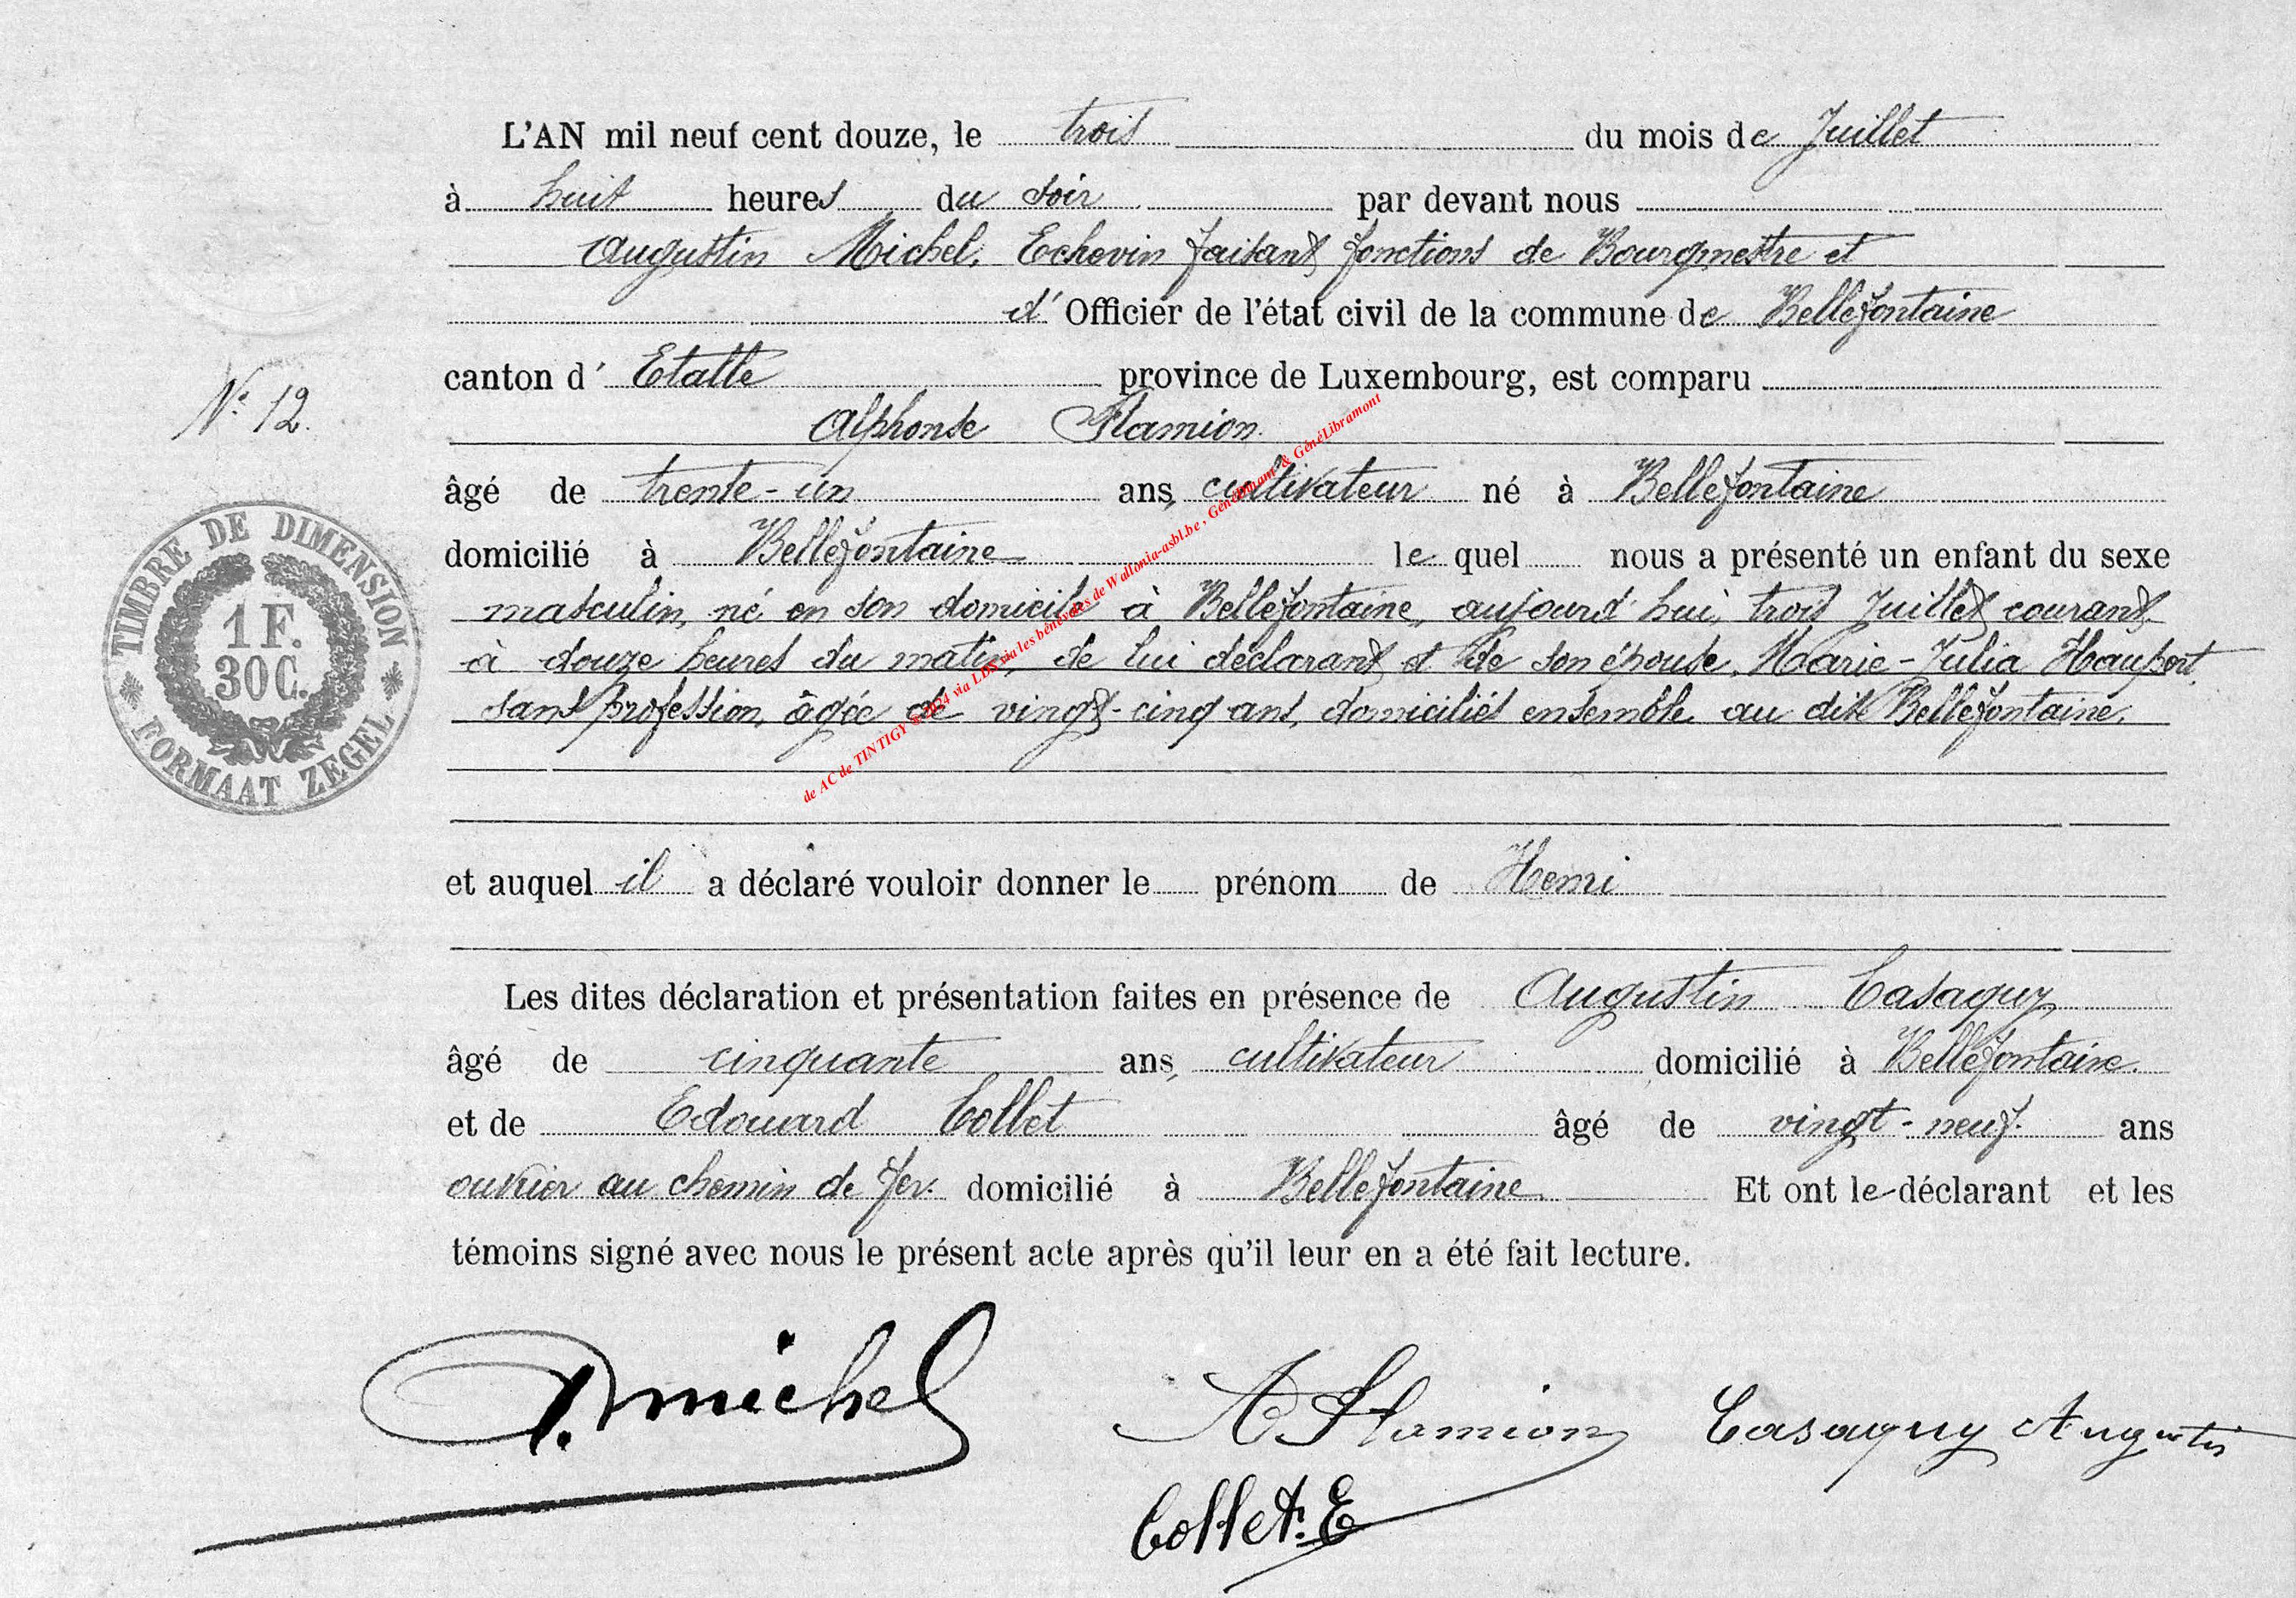 L'AN mil neuf cent douze, le trois du mois de Juillet
à huit heures du soir par devant nous
Augustin Michel, Echevin faisant fonctions de Bourgmestre et
d' Officier de l'état civil de la commune de Bellefontaine
canton d' Etalle province de Luxembourg, est comparu
N° 12.
Alphonse Flamion
âgé de trente-un ans, cultivateur né à Bellefontaine
domicilié à Bellefontaine lequel nous a présenté un enfant du sexe
masculin, né en son domicile à Bellefontaine, aujourd'hui, trois Juillet courant
à douze heures du matin, de lui déclarant et de son épouse, Marie-Julia Haupert,
sans profession, âgée de vingt-cinq ans, domiciliés ensemble au dit Bellefontaine.
TIMBRE DE DIMENSION
1 F.
30 C.
FORMAAT ZEGEL
de AC de TINTIGY © 2024 via LDS via les bénévoles de Wallonia-asbl.be, & GénéLibramont
et auquel il a déclaré vouloir donner le prénom de Henri
Les dites déclaration et présentation faites en présence de Augustin Casaquy
âgé de cinquante ans, cultivateur domicilié à Bellefontaine.
et de Edouard Collet âgé de vingt-neuf ans
ouvrier au chemin de fer. domicilié à Bellefontaine Et ont le déclarant et les
témoins signé avec nous le présent acte après qu'il leur en a été fait lecture.
A. Michel
A Flamion Casaquy Augustin
Collet. E